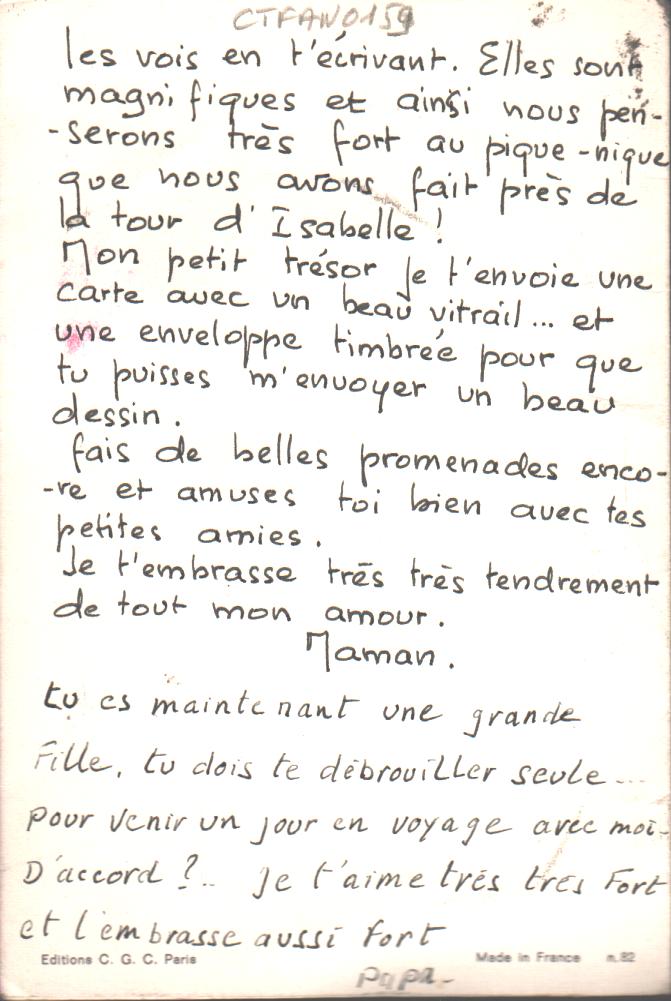 CTFAN0159
les vois en t'écrivant. Elles sont
magnifiques et ainsi nous pen-
-serons très fort au pique-nique
que nous avons fait près de
la tour d'Isabelle !
Mon petit trésor je t'envoie une
carte avec un beau vitrail... et
une enveloppe timbrée pour que
tu puisses m'envoyer un beau
dessin.
fais de belles promenades enco-
-re et amuses toi bien avec tes
petites amies.
Je t'embrasse très très tendrement
de tout mon amour.
Maman.
tu es maintenant une grande
Fille, tu dois te débrouiller seule...
pour venir un jour en voyage avec moi.
D'accord ?.. Je t'aime très très Fort
et t'embrasse aussi fort
Editions C. G. C. Paris Made in France n.82
Papa-